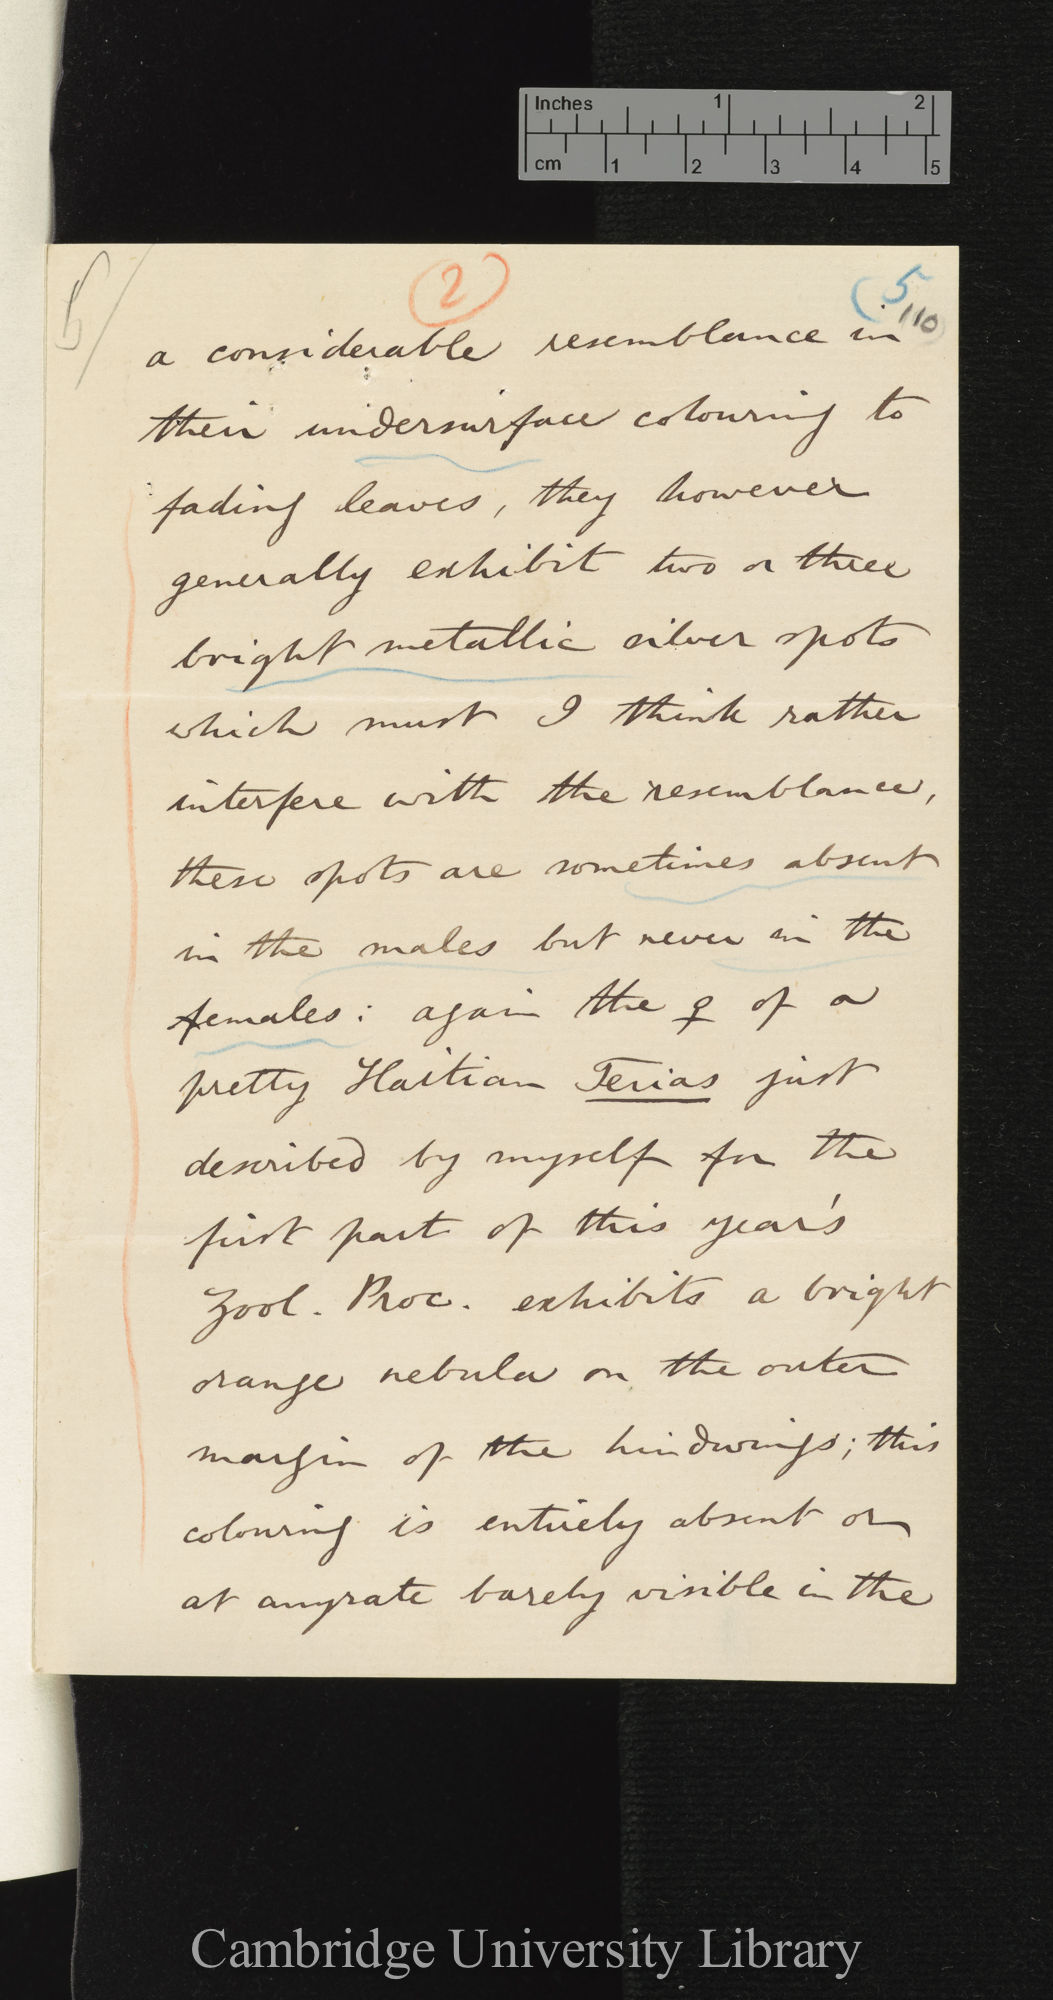 Inches 1 2
cm 1 2 3 4 5
5
2
5
110
a considerable resemblance in
their undersurface colouring to
fading leaves, they however
generally exhibit two or three
bright metallic silver spots
which must I think rather
interfere with the resemblance,
these spots are sometimes absent
in the males but never in the
females: again the ♀ of a
pretty Haitian Terias just
described by myself for the
first part of this year's
Zool. Proc. exhibits a bright
orange nebula on the outer
margin of the hindwings; this
colouring is entirely absent or
at anyrate barely visible in the
Cambridge University Library